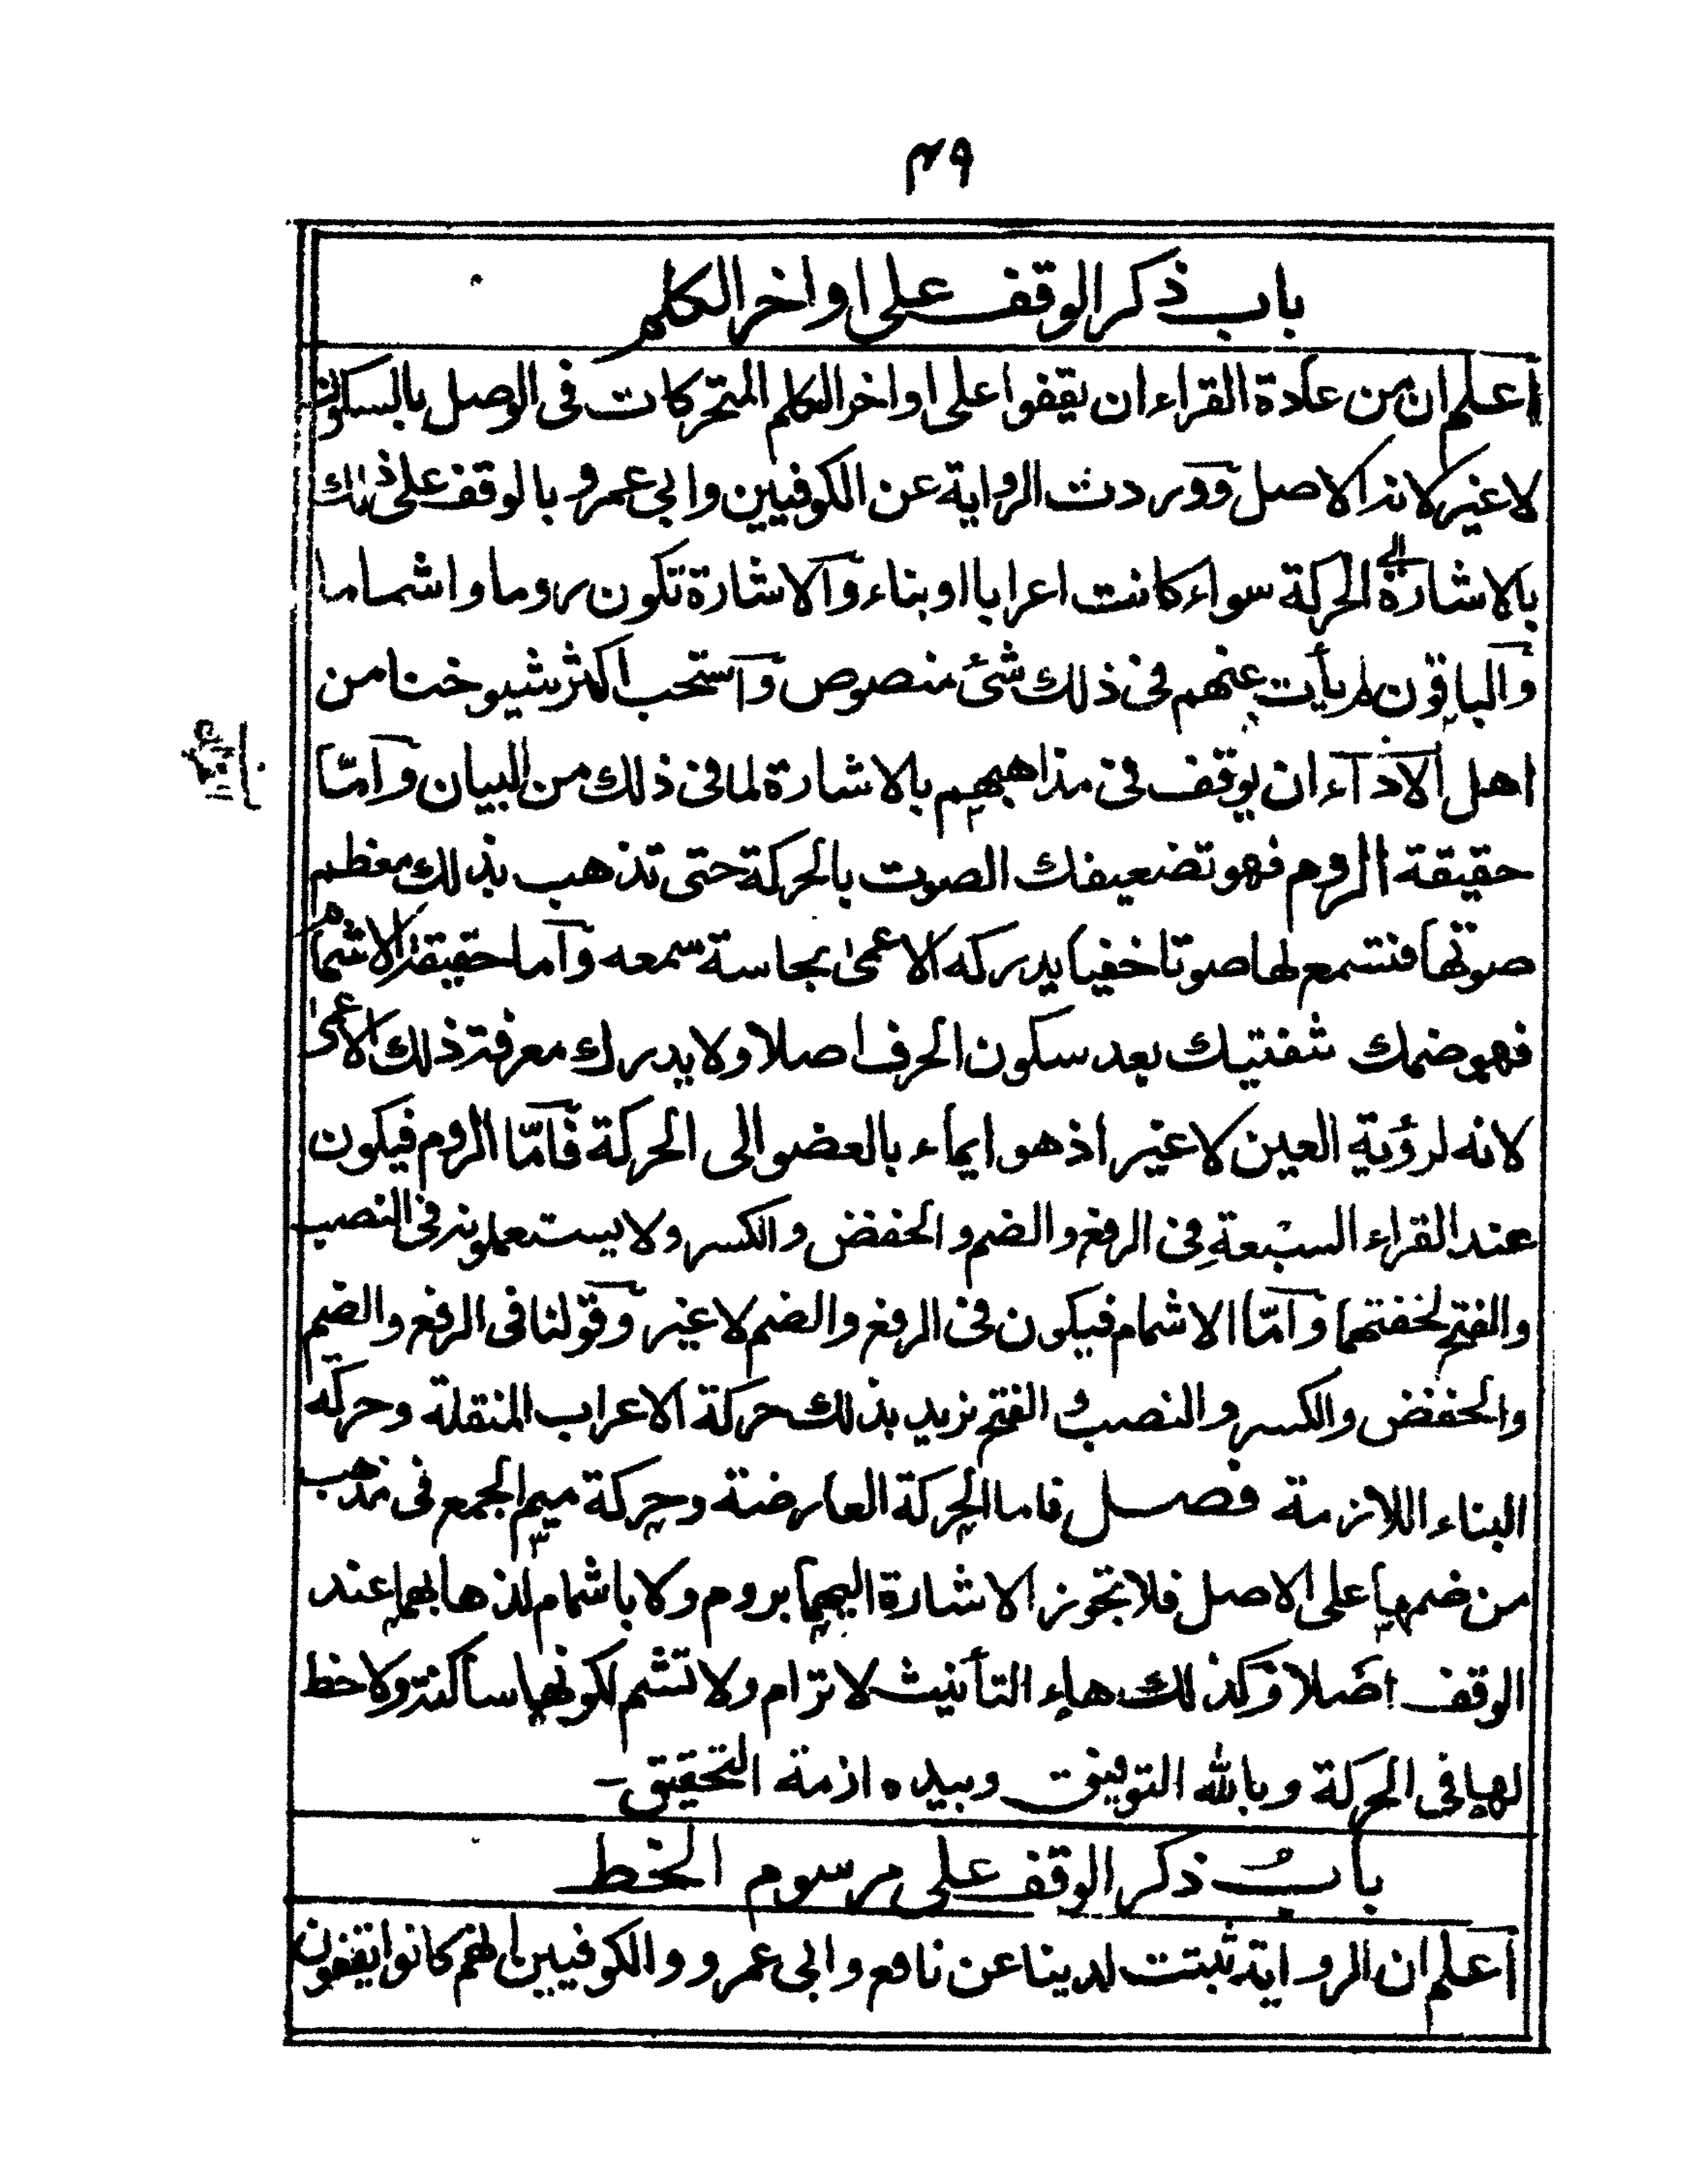 ٤٩
باب ذكر الوقف على اواخر الكلم
اعلم ان من عادة القراء ان يقفوا على اواخر الكلم المتحركات فى الوصل بالسكون
لا غير لانه الاصل ووردت الرواية عن الكوفيين وابى عمرو بالوقف على ذلك
بالاشارة الى الحركة سواء كانت اعرابا او بناء والاشارة تكون روما واشماما
والباقون لم يأت عنهم فى ذلك شئ منصوص واستحب اكثر شيوخنا من
اهل الاداء ان يوقف فى مذاهبهم بالاشارة لما فى ذلك من البيان وامّا
حقيقة الروم فهو تضعيفك الصوت بالحركة حتى تذهب بذلك معظم
صوتها فتسمع لها صوتا خفيا يدركه الاعمى بحاسة سمعه واما حقيقة الاشمام
فهو ضمك شفتيك بعد سكون الحرف اصلا ولا يدرك معرفة ذلك الاعمى
لانه لرؤية العين لا غير اذ هو ايماء بالعضو الى الحركة فامّا الروم فيكون
عند القراء السبعة فى الرفع والضم والخفض والكسر ولا يستعملونه فى النصب
والفتح لخفتهما وامّا الاشمام فيكون فى الرفع والضم لا غير وقولنا فى الرفع والضم
والخفض والكسر والنصب والفتح نريد بذلك حركة الاعراب المنتقلة وحركة
البناء اللازمة فصل فاما الحركة العارضة وحركة ميم الجمع فى مذهب
من ضمها على الاصل فلا تجوز الاشارة اليهما بروم ولا باشمام لذهابهما عند
الوقف اصلا وكذلك هاء التأنيث لا ترام ولا تشم لكونها ساكنة ولا حظ
لها فى الحركة وبالله التوفيق وبيده ازمة التحقيق
باب ذكر الوقف على مرسوم الخط
اعلم ان الرواية ثبتت لدينا عن نافع وابى عمرو والكوفيين انهم كانوا يقفون